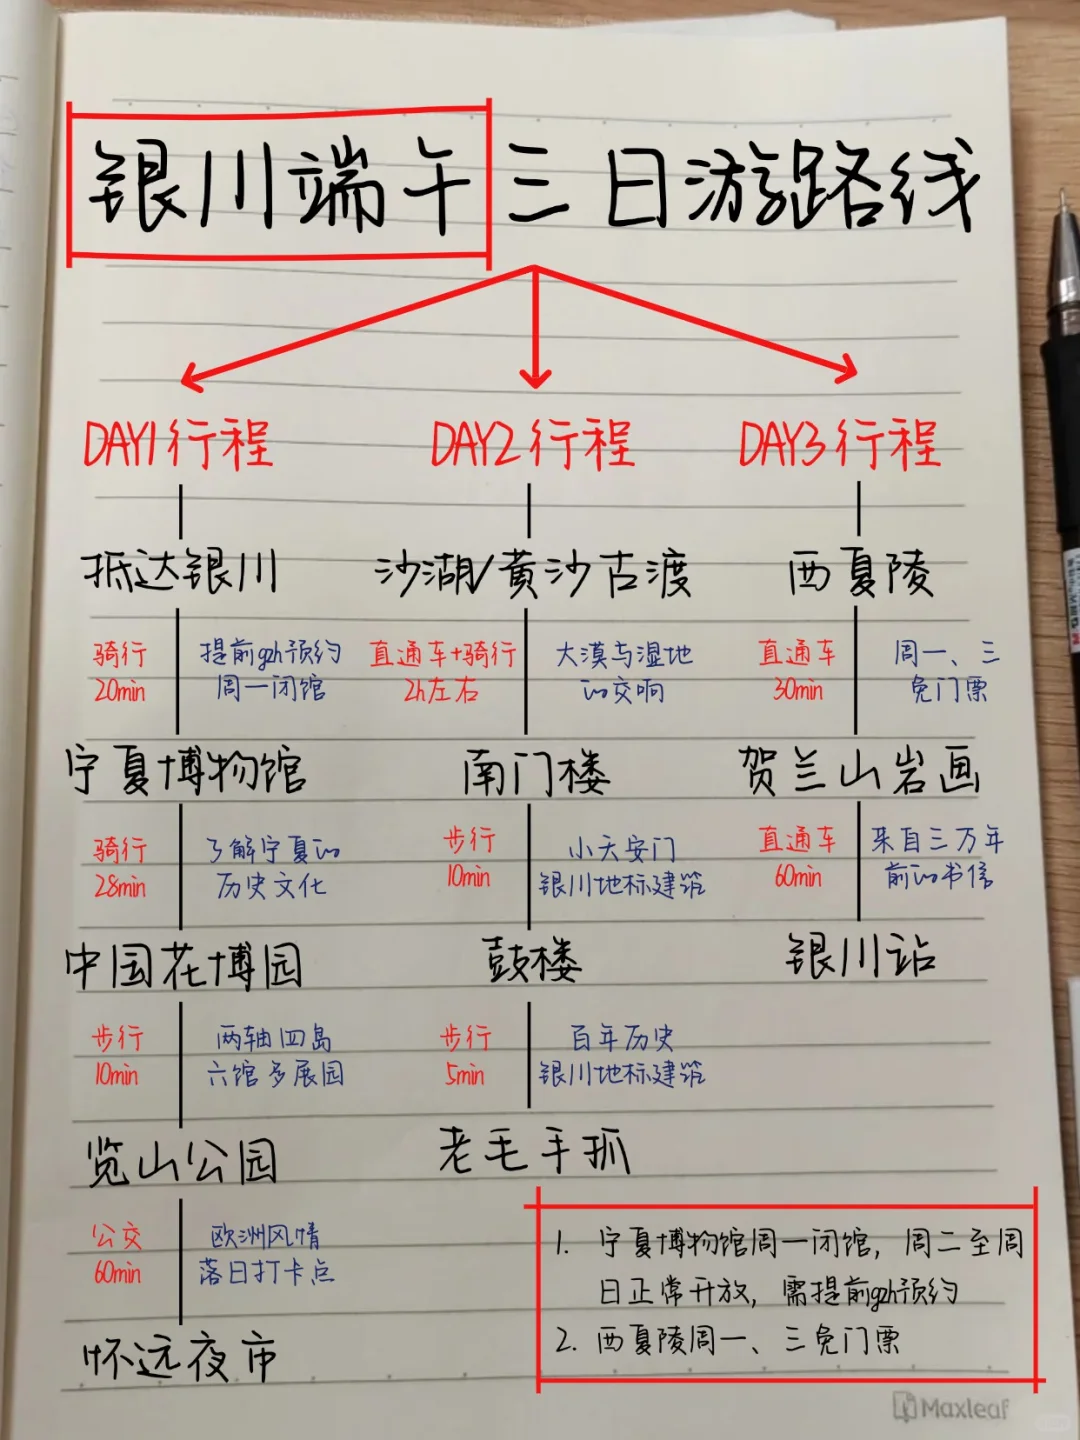 银川端午三日游路线
DAY1行程
抵达银川
骑行
20min
提前gzh预约
周一闭馆
宁夏博物馆
骑行
28min
了解宁夏的
历史文化
中国花博园
步行
10min
两轴四岛
六馆多展园
览山公园
公交
60min
欧洲风情
落日打卡点
怀远夜市
DAY2行程
沙湖/黄沙古渡
直通车+骑行
2h左右
大漠与湿地
的交响
南门楼
步行
10min
小天安门
银川地标建筑
鼓楼
步行
5min
百年历史
银川地标建筑
老毛手抓
DAY3行程
西夏陵
直通车
30min
周一、三
免门票
贺兰山岩画
直通车
60min
来自三万年
前的书信
银川站
1. 宁夏博物馆周一闭馆，周二至周
日正常开放，需提前gzh预约
2. 西夏陵周一、三免门票
Maxleaf